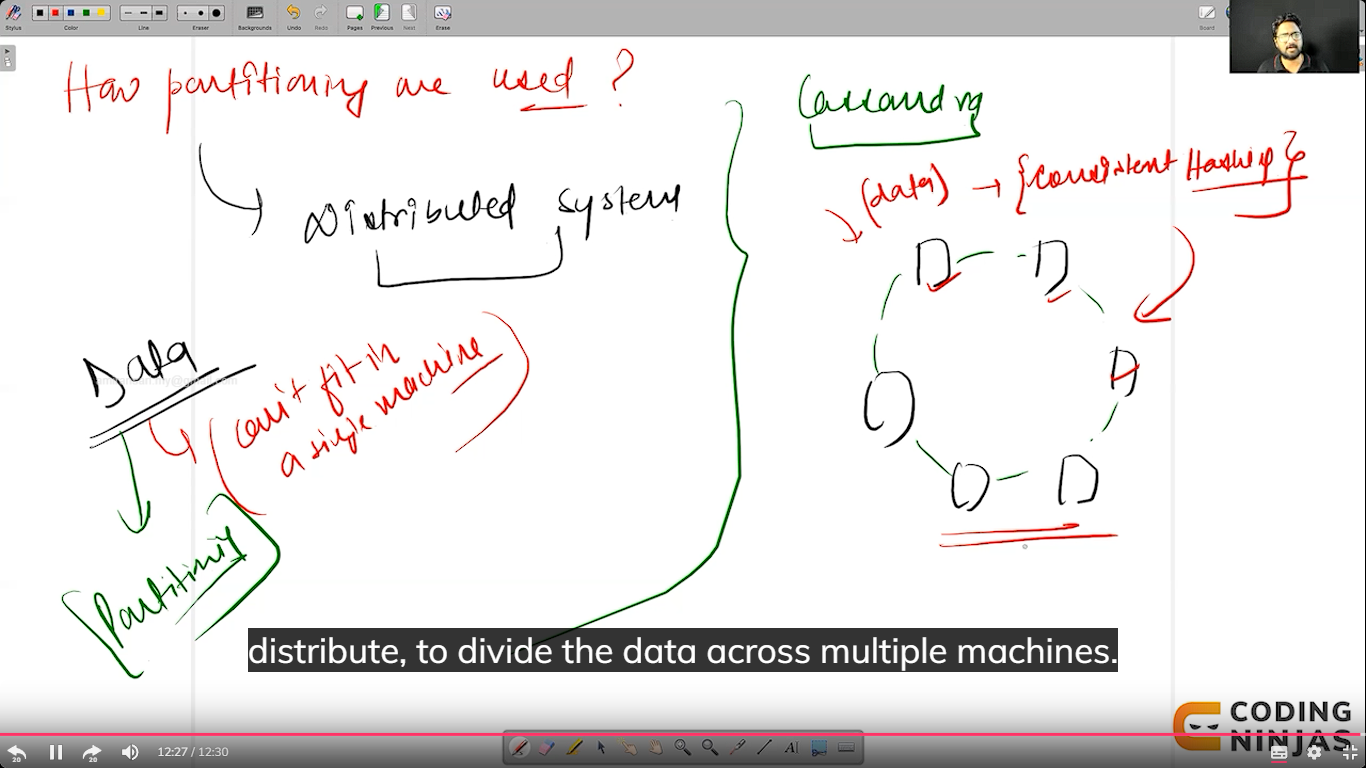 Stylus
Color
Line
Eraser
Backgrounds
Undo
Redo
Pages
Previous
Next
Erase
Board
How partitioning are used ?
Distributed system
Data
can't fit in
a single machine
Partitioning
Cassandra
(data) → {Consistent Hashing}
distribute, to divide the data across multiple machines.
CODING
NINJAS
20
20
12:27 / 12:30